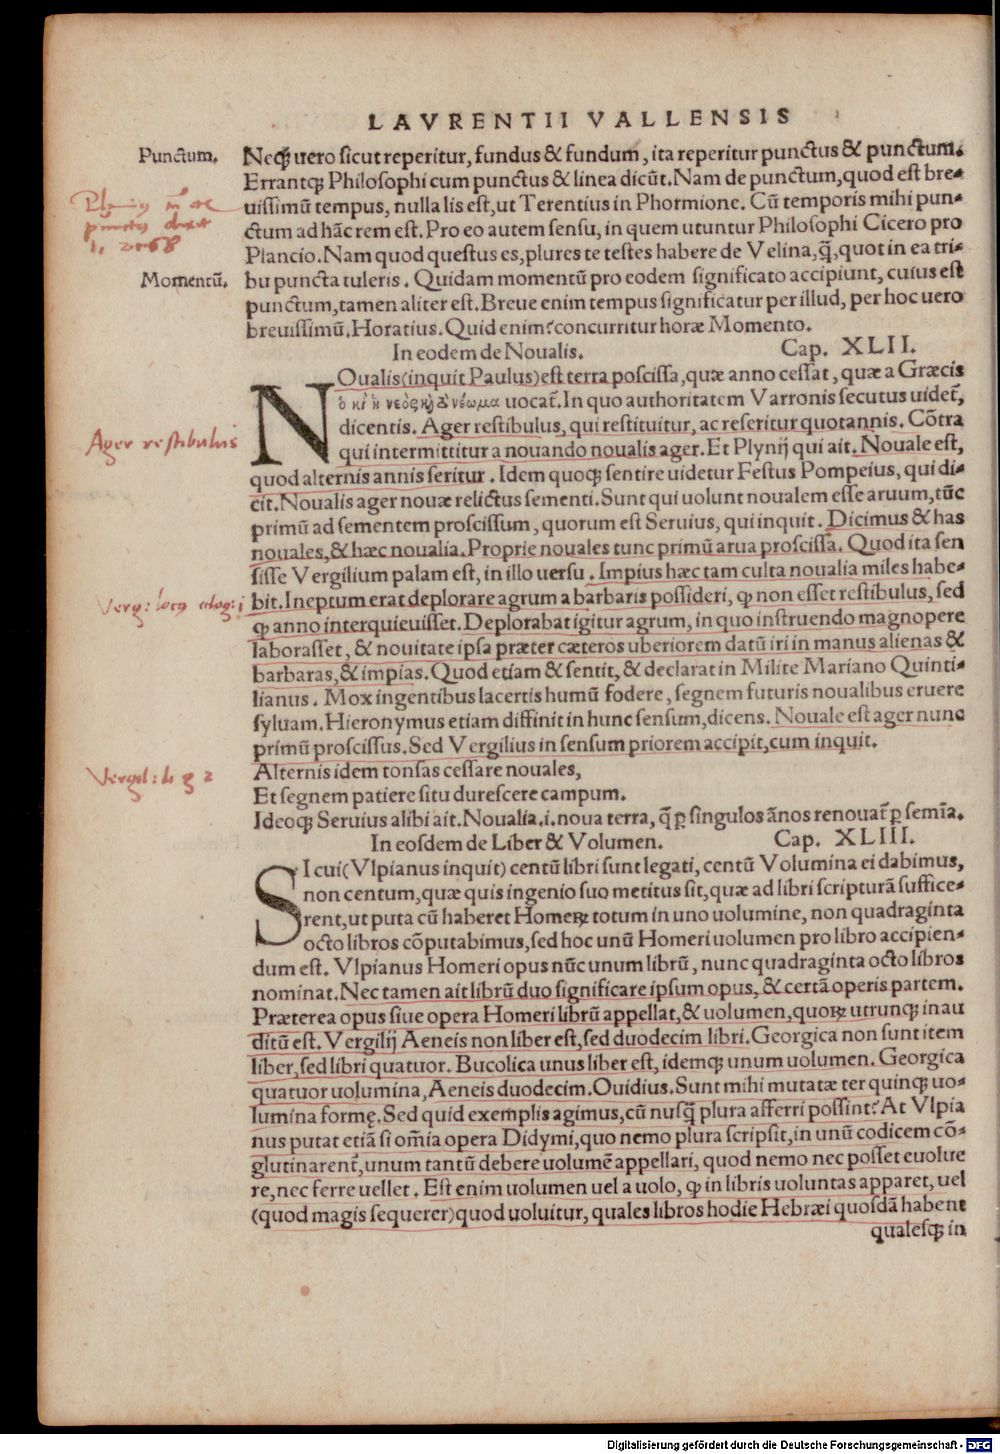 LAVRENTII VALLENSIS
Punctum.
Neqꝫ uero sicut reperitur, fundus & fundum, ita reperitur punctus & punctum.
Errantqꝫ Philosophi cum punctus & linea dicūt. Nam de punctum, quod est bre-
uissimū tempus, nulla lis est, ut Terentius in Phormione. Cū temporis mihi pun-
ctum ad hāc rem est. Pro eo autem sensu, in quem utuntur Philosophi Cicero pro
Plancio. Nam quod questus es, plures te testes habere de Velina, q̄, quot in ea tri-
Momentū.
bu puncta tuleris. Quidam momentū pro eodem significato accipiunt, cuius est
punctum, tamen aliter est. Breue enim tempus significatur per illud, per hoc uero
breuissimū. Horatius. Quid enim? concurritur horæ Momento.
In eodem de Noualis. Cap. XLII.
NOualis(inquit Paulus)est terra poscissa, quæ anno cessat, quæ a Græcis
uocat᷑. In quo authoritatem Varronis secutus uidet᷑,
Ager restibulus
dicentis. Ager restibulus, qui restituitur, ac reseritur quotannis. Cōtra
qui intermittitur a nouando noualis ager. Et Plynij qui ait. Nouale est,
quod alternis annis seritur. Idem quoqꝫ sentire uidetur Festus Pompeius, qui di-
cit. Noualis ager nouæ relictus sementi. Sunt qui uolunt noualem esse aruum, tūc
primū ad sementem proscissum, quorum est Seruius, qui inquit. Dicimus & has
nouales, & hæc noualia. Proprie nouales tunc primū arua proscissa. Quod ita sen
sisse Vergilium palam est, in illo uersu. Impius hæc tam culta noualia miles habe-
bit. Ineptum erat deplorare agrum a barbaris possideri, ꝙ non esset restibulus, sed
ꝙ anno interquieuisset. Deplorabat igitur agrum, in quo instruendo magnopere
laborasset, & nouitate ipsa præter cæteros uberiorem datū iri in manus alienas &
barbaras, & impias. Quod etiam & sentit, & declarat in Milite Mariano Quinti-
lianus. Mox ingentibus lacertis humū fodere, segnem futuris noualibus eruere
syluam. Hieronymus etiam diffinit in hunc sensum, dicens. Nouale est ager nunc
primū proscissus. Sed Vergilius in sensum priorem accipit, cum inquit.
Alternis idem tonsas cessare nouales,
Et segnem patiere situ durescere campum.
Ideoqꝫ Seruius alibi ait. Noualia.i.noua terra, q̄ ꝑ singulos ānos renouat᷑ ꝑ semīa.
In eosdem de Liber & Volumen. Cap. XLIII.
SI cui(Vlpianus inquit) centū libri sunt legati, centū Volumina ei dabimus,
non centum, quæ quis ingenio suo metitus sit, quæ ad libri scripturā suffice-
rent, ut puta cū haberet Homerꝝ totum in uno uolumine, non quadraginta
octo libros cōputabimus, sed hoc unū Homeri uolumen pro libro accipien-
dum est. Vlpianus Homeri opus nūc unum librū, nunc quadraginta octo libros
nominat. Nec tamen ait librū duo significare ipsum opus, & certā operis partem.
Præterea opus siue opera Homeri librū appellat, & uolumen, quorꝝ utrunqꝫ inau
ditū est. Vergilij Aeneis non liber est, sed duodecim libri. Georgica non sunt item
liber, sed libri quatuor. Bucolica unus liber est, idemqꝫ unum uolumen. Georgica
quatuor uolumina, Aeneis duodecim. Ouidius. Sunt mihi mutatæ ter quinqꝫ uo-
lumina formę. Sed quid exemplis agimus, cū nusq̄ plura afferri possint? At Vlpia
nus putat etiā si om̄ia opera Didymi, quo nemo plura scripsit, in unū codicem cō-
glutinarent᷑, unum tantū debere uolumē appellari, quod nemo nec posset euolue
re, nec ferre uellet. Est enim uolumen uel a uolo, ꝙ in libris uoluntas apparet, uel
(quod magis sequerer)quod uoluitur, quales libros hodie Hebræi quosdā habent
qualesqꝫ in
Digitalisierung gefördert durch die Deutsche Forschungsgemeinschaft - DFG